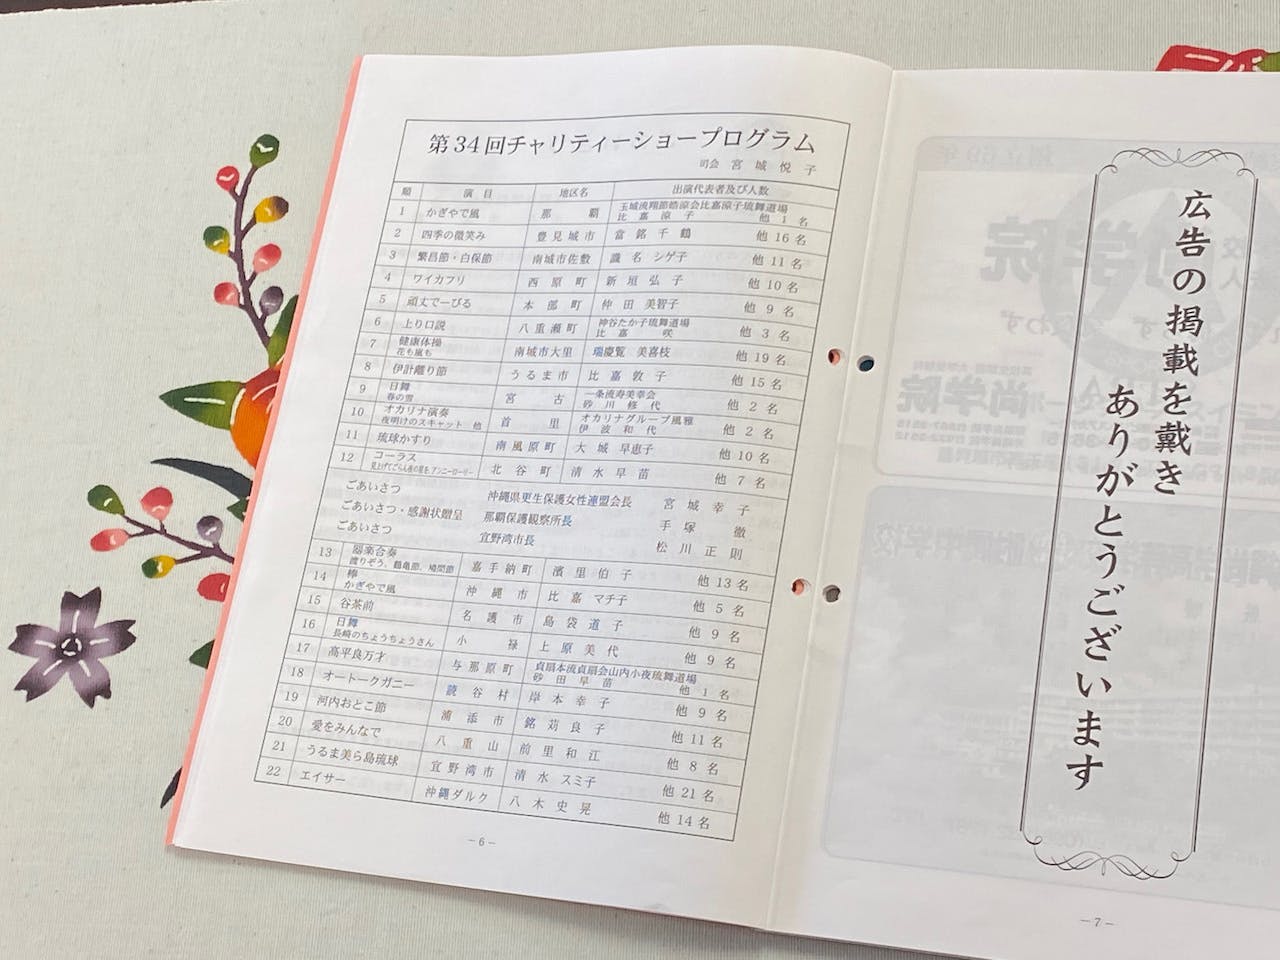 第34回チャリティーショープログラム
司会 宮城悦子
順 演目 地区名 出演代表者及び人数
1 かぎやで風 那覇 玉城流翔節皓涼会比嘉涼子琉舞道場
比嘉涼子 他 1 名
2 四季の微笑み 豊見城市 當銘千鶴 他 16 名
3 繁昌節・白保節 南城市佐敷 識名シゲ子 他 11 名
4 ワイカフリ 西原町 新垣弘子 他 10 名
5 頑丈でーびる 本部町 仲田美智子 他 9 名
6 上り口説 八重瀬町 神谷たか子琉舞道場
比嘉咲 他 3 名
7 健康体操
花も嵐も 南城市大里 瑞慶覧美喜枝 他 19 名
8 伊計離り節 うるま市 比嘉敦子 他 15 名
9 日舞
春の雪 宮古 一条流寿美幸会
砂川修代 他 2 名
10 オカリナ演奏
夜明けのスキャット 他 首里 オカリナグループ風雅
伊波和代 他 2 名
11 琉球かすり 南風原町 大城早恵子 他 10 名
12 コーラス
見上げてごらん夜の星を アンニーローリー 北谷町 清水早苗 他 7 名
ごあいさつ 沖縄県更生保護女性連盟会長 宮城幸子
ごあいさつ・感謝状贈呈 那覇保護観察所長 手塚徹
ごあいさつ 宜野湾市長 松川正則
13 器楽合奏
渡りぞう、鶴亀節、鳩間節 嘉手納町 濱里伯子 他 13 名
14 棒
かぎやで風 沖縄市 比嘉マチ子 他 5 名
15 谷茶前 名護市 島袋道子 他 9 名
16 日舞
長崎のちょうちょうさん 小禄 上原美代 他 9 名
17 高平良万才 与那原町 貞扇本流貞扇会山内小夜琉舞道場
砂田早苗 他 1 名
18 オートークガニー 読谷村 岸本幸子 他 9 名
19 河内おとこ節 浦添市 銘苅良子 他 11 名
20 愛をみんなで 八重山 前里和江 他 8 名
21 うるま美ら島琉球 宜野湾市 清水スミ子 他 21 名
22 エイサー 沖縄ダルク 八木史晃 他 14 名
－6－
広告の掲載を戴き
ありがとうございます
－7－